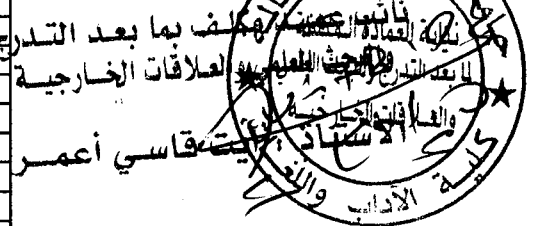 نائب عميد مكلف بما بعد التدرج
والبحث العلمي والعلاقات الخارجية
الأستاذ : آيت قاسي أعمر
نيابة العمادة المكلفة
لما بعد التدرج
والعلاقات الخارجية
كلية الآداب واللغـ